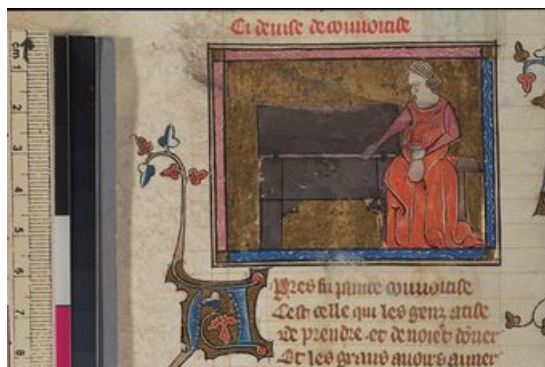 Ci deuise de couuoitise
cm
1
2
3
4
5
6
7
8
Apres fu painte couuoitise
Cest celle qui les genz atise
De prendre et de noient doner
Et les grans auoirs auner